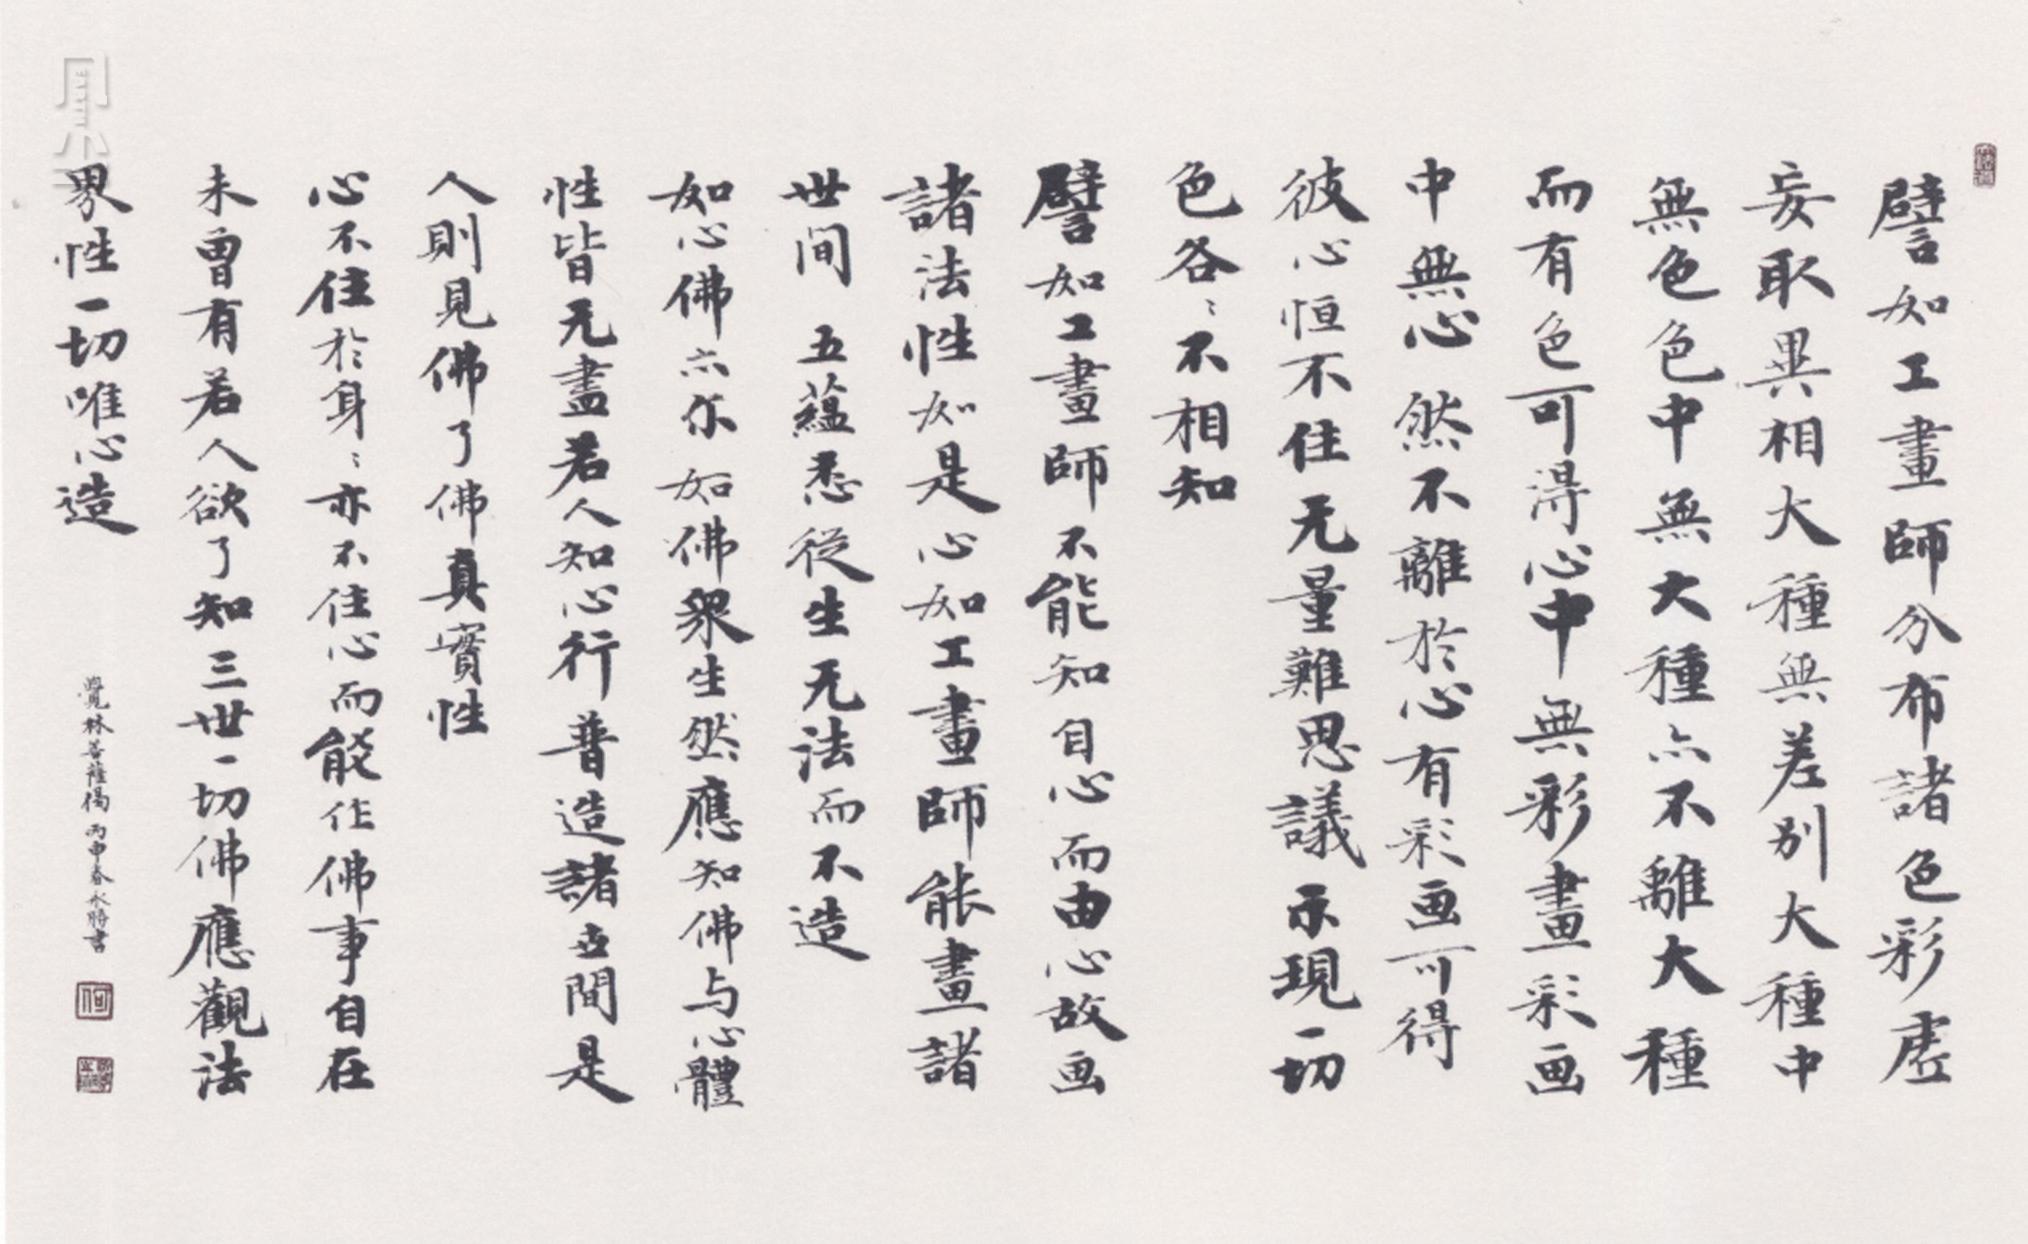 譬如工畫師分布諸色彩虛
妄取異相大種無差别大種中
無色色中無大種亦不離大種
而有色可得心中無彩畫彩画
中無心然不離於心有彩画可得
彼心恒不住无量難思議示現一切
色各〻不相知
譬如工畫師不能知自心而由心故画
諸法性如是心如工畫師能畫諸
世间五蘊悉從生无法而不造
如心佛亦尔如佛眾生然應知佛与心體
性皆无盡若人知心行普造諸世間是
人則見佛了佛真實性
心不住於身〻亦不住心而能作佛事自在
未曾有若人欲了知三世一切佛應觀法
界性一切唯心造
覺林菩薩偈丙申春永勝書
何